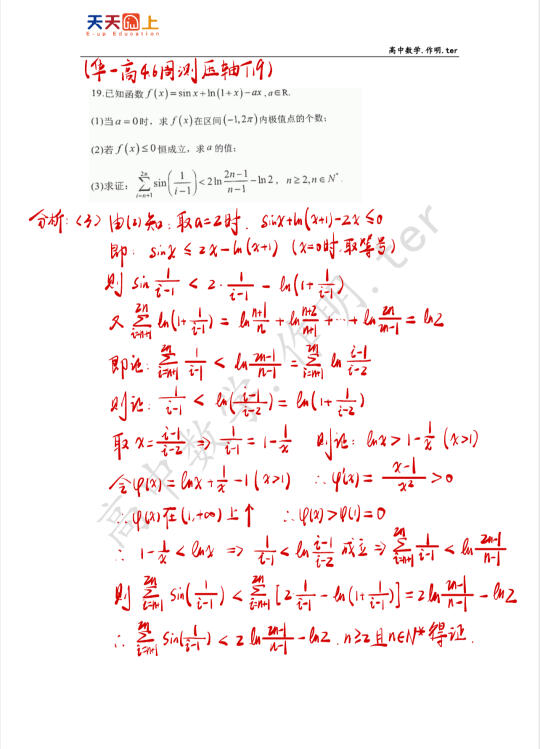 天天向上
E-up Education
高中数学.作明.ter
(华一高4.6周测压轴T19)
19.已知函数 f(x)=sin x+ln(1+x)-ax, a∈R.
(1)当 a=0时, 求 f(x)在区间(-1,2π)内极值点的个数;
(2)若 f(x)≤0恒成立, 求a的值;
(3)求证: ∑_{i=n+1}^{2n} sin(1/(i-1)) < 2ln (2n-1)/(n-1) - ln2, n≥2, n∈N*.
分析: (3) 由(2)知: 取a=2时, sinx+ln(x+1)-2x≤0
即: sinx ≤ 2x-ln(x+1) (x=0时取等号)
则 sin 1/(i-1) < 2·1/(i-1) - ln(1+1/(i-1))
又 ∑_{i=n+1}^{2n} ln(1+1/(i-1)) = ln (n+1)/n + ln (n+2)/(n+1) + ⋯ + ln 2n/(2n-1) = ln2
即证: ∑_{i=n+1}^{2n} 1/(i-1) < ln (2n-1)/(n-1) = ∑_{i=n+1}^{2n} ln (i-1)/(i-2)
则证: 1/(i-1) < ln((i-1)/(i-2)) = ln(1+1/(i-2))
取 x=(i-1)/(i-2) ⇒ 1/(i-1) = 1-1/x 则证: lnx > 1-1/x (x>1)
令φ(x)=lnx+1/x-1 (x>1) ∴φ'(x)=(x-1)/x² >0
∴φ(x)在(1,+∞)上↑ ∴φ(x)>φ(1)=0
∴ 1-1/x < lnx ⇒ 1/(i-1) < ln (i-1)/(i-2) 成立 ⇒ ∑_{i=n+1}^{2n} 1/(i-1) < ln (2n-1)/(n-1)
则 ∑_{i=n+1}^{2n} sin(1/(i-1)) < ∑_{i=n+1}^{2n} [2·1/(i-1) - ln(1+1/(i-1))] = 2ln (2n-1)/(n-1) - ln2
∴ ∑_{i=n+1}^{2n} sin(1/(i-1)) < 2 ln (2n-1)/(n-1) - ln2, n≥2且n∈N* 得证.
高中数学.作明.ter